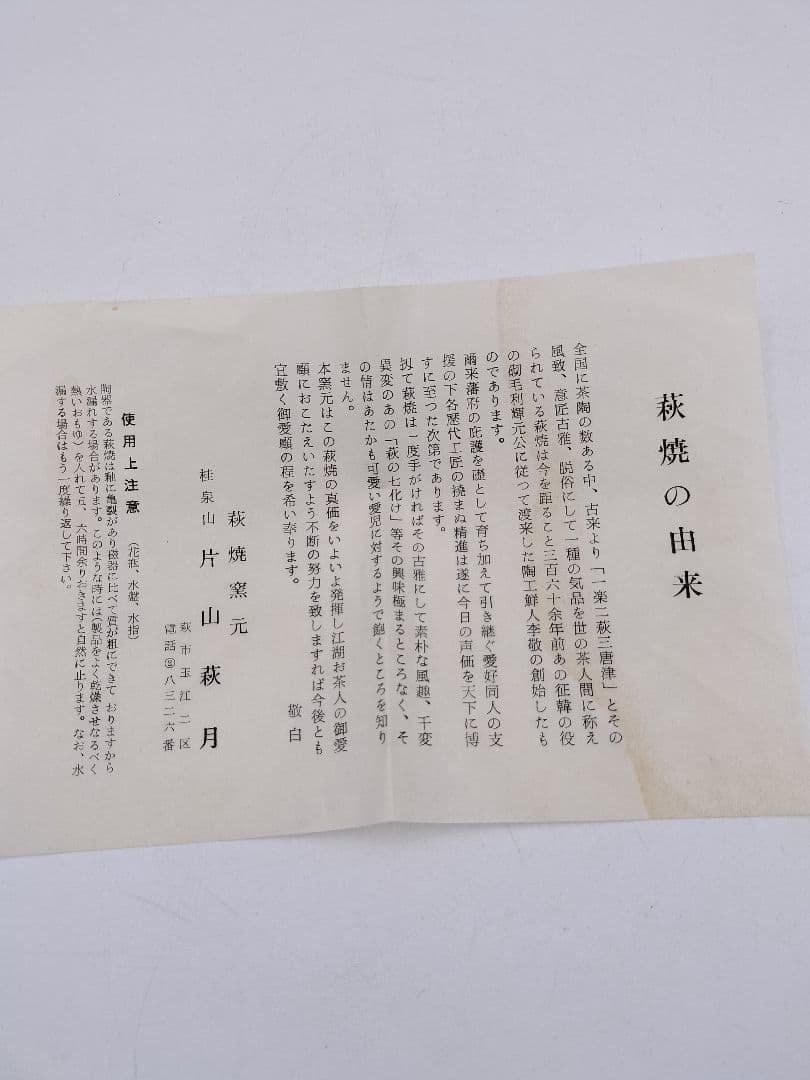 萩焼の由来
全国に茶陶の数ある中、古来より「一楽二萩三唐津」とその
風致、意匠古雅、脱俗にして一種の気品を世の茶人間に称え
られている萩焼は今を距ること三百六十余年前あの征韓の役
の砌毛利輝元公に従つて渡来した陶工鮮人李敬の創始したも
のであります。
爾来藩府の庇護を礎として育ち加えて引き継ぐ愛好同人の支
援の下各歴代工匠の撓まぬ精進は遂に今日の声価を天下に博
すに至つた次第であります。
扨て萩焼は一度手がければその古雅にして素朴な風趣、千変
異変のあの「萩の七化け」等その興味極まるところなく、そ
の情はあたかも可愛い愛児に対するようで飽くところを知り
ません。
本窯元はこの萩焼の真価をいよいよ発揮し江湖お茶人の御愛
顧におこたえいたすよう不断の努力を致しますれば今後とも
宜敷く御愛顧の程を希い奉ります。
敬白
萩焼窯元
桂泉山 片山萩月
萩市玉江二区
電話②八三二六番
使用上注意 (花瓶、水盤、水指)
陶器である萩焼は釉に亀裂があり磁器に比べて質が粗にできておりますから
水漏れする場合があります。このような時には(製品をよく乾燥させなるべく
熱いおもゆ)を入れて五、六時間余りおきますと自然に止ります。なお、水
漏する場合はもう一度繰り返して下さい。